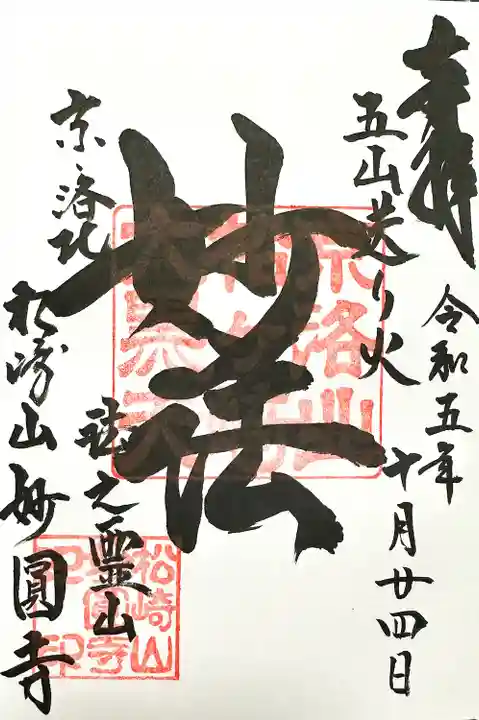 奉拝
令和五年
十月廿四日
五山送り火
妙法
京・洛北
鎮之靈山
松崎山妙圓寺
松崎山
妙圓寺